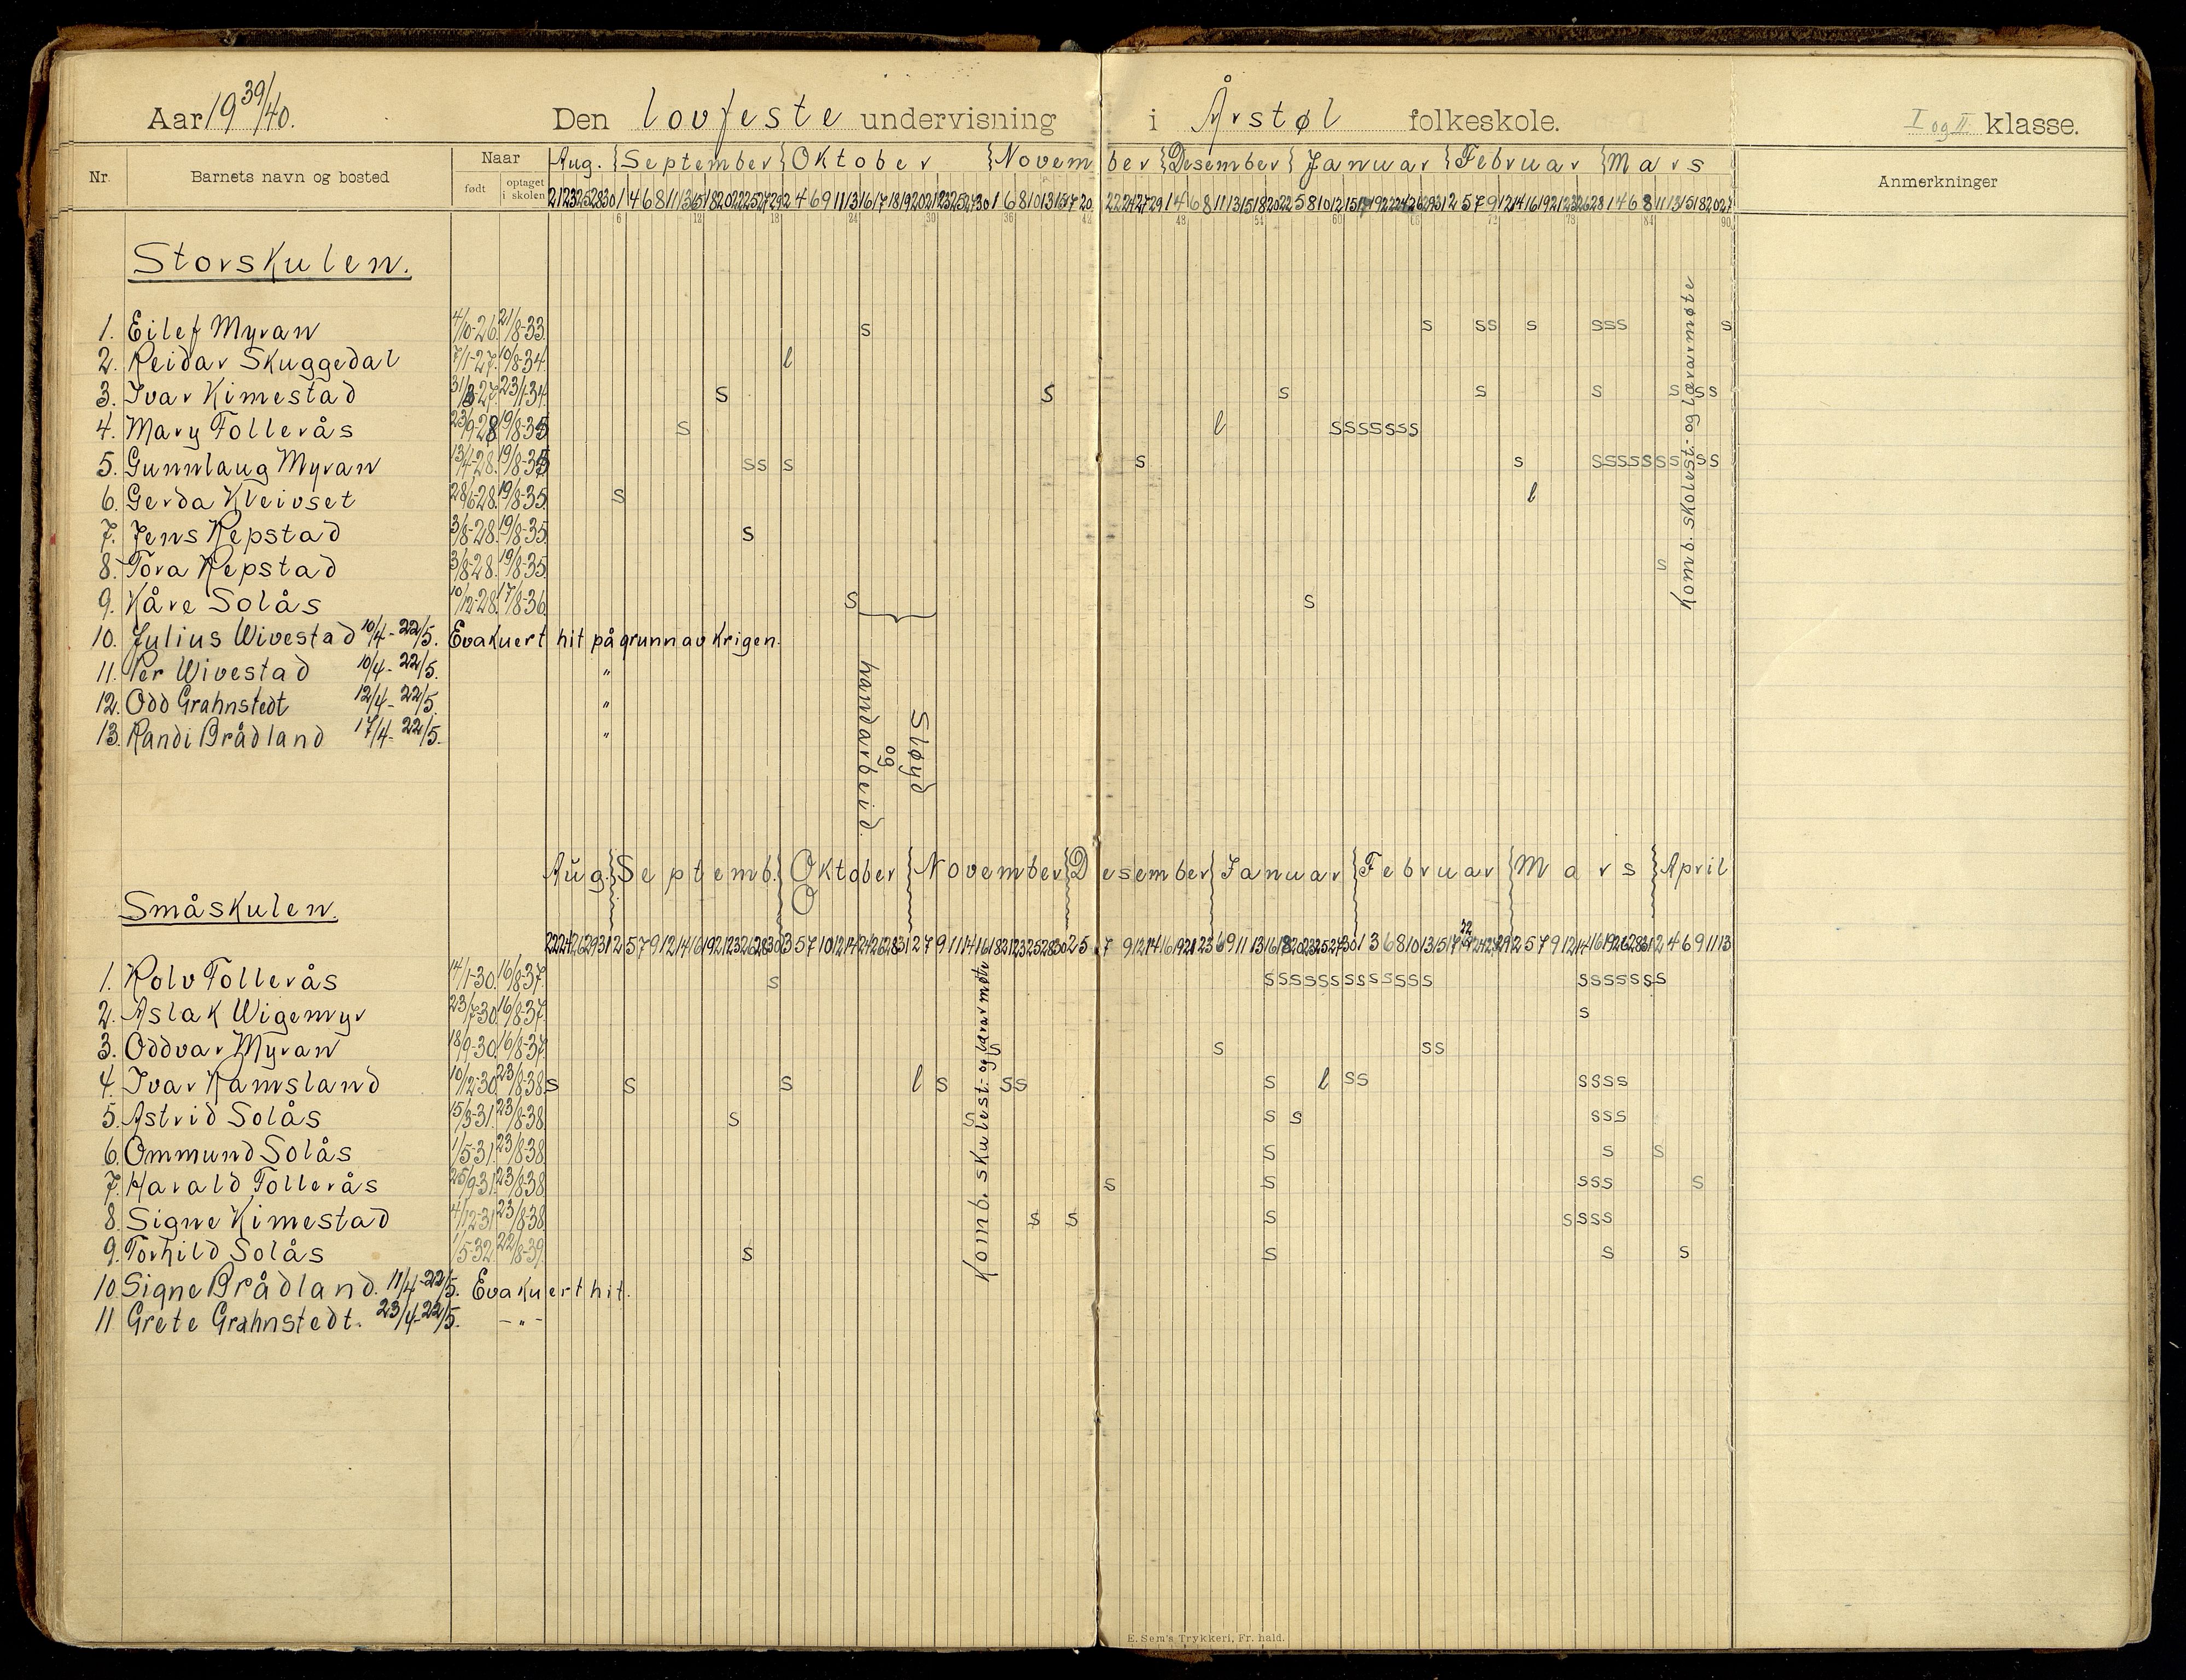 Aar 1939/40. Den lovfeste undervisning i Årstøl folkeskole. I og II klasse.
Nr. Barnets navn og bosted Naar født optaget i skolen Aug. September Oktober November Desember Januar Februar Mars Anmerkninger
6 12 18 24 30 36 42 48 54 60 66 72 78 84 90
Storskulen.
1. Eilef Myran 4/10-26. 21/8-33. s s s s s s s s s
2. Reidar Skuggedal 7/1-27. 10/8-34. l
3. Ivar Kimestad 31/3-27. 23/1-34. s s s s s s s s
4. Mary Tollerås 23/9-28 19/8-35 s l s s s s s s s
5. Gunnlaug Myran 13/4-28. 19/8-35 s s s s s s s s s s s s s s
6. Gerda Kleivset 28/6-28. 19/8-35. s l
7. Jens Repstad 3/8-28. 19/8-35. s
8. Tora Repstad 3/8-28. 19/8-35. s
9. Kåre Solås 10/12-28. 17/8-36. s s
Komb. skolest.- og lærarmøte
10. Julius Wivestad 10/4-22/5. Evakuert hit på grunn av krigen.
11. Per Wivestad 10/4-22/5. "
12. Odd Grahnstedt 12/4-22/5. "
13. Randi Brådland 17/4-22/5. "
Sløyd
og
handarbeid.
Aug. Septemb. Oktober November Desember Januar Februar Mars April
O
Småskulen.
1. Rolv Tollerås 14/1-30. 16/8-37. s s s s s s s s s s s s s s s s s s s s s
2. Aslak Wigemyr 23/7-30. 16/8-37. s
3. Oddvar Myran 18/9-30. 16/8-37. s s s s
4. Ivar Ramsland 10/12-30. 23/8-38 s s s l s s s s l s s s s s s
5. Astrid Solås 15/3-31. 23/8-38. s s s s s s s
6. Ommund Solås 1/5-31. 23/8-38. s s s
7. Harald Tollerås 25/9-31. 23/8-38. s s s s s s
8. Signe Kimestad 4/12-31. 23/8-38. s s s s s s s
9. Torhild Solås 1/5-32. 22/8-39. s s s s
Komb. skulest.- og lærarmøte
10. Signe Brådland. 11/4-22/5. Evakuert hit.
11 Grete Grahnstedt. 23/4-22/5. - " -
E. Sem's Trykkeri, Fr. hald.